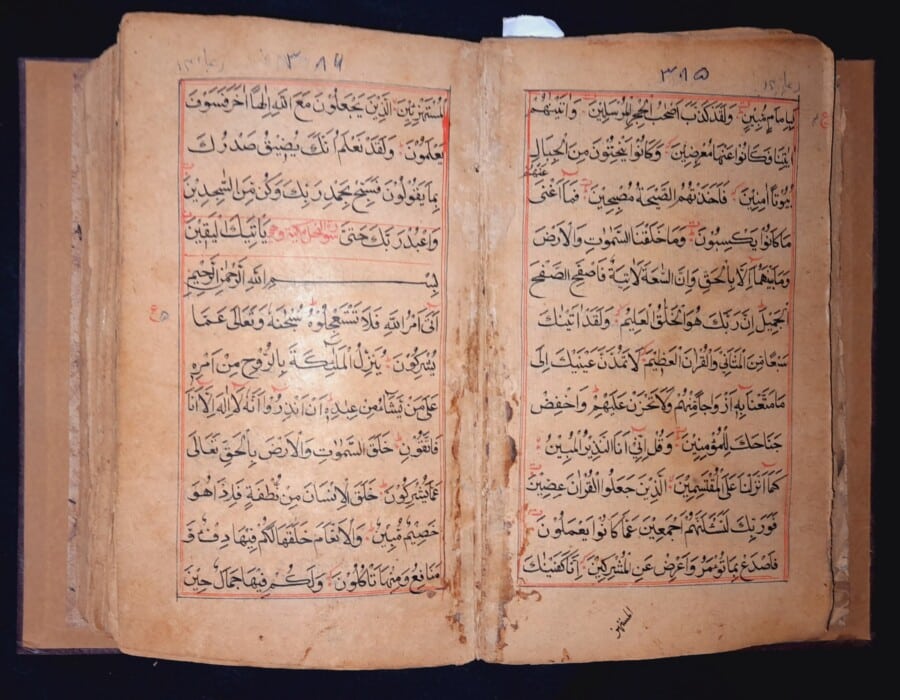 ٣٨٥
لبامام مبين ولقد كذب اصحب الحجر المرسلين واتينهم
ايتنا فكانوا عنها معرضين وكانوا ينحتون من الجبال
بيوتا امنين فاخذتهم الصيحة مصبحين فما اغنى عنهم
ما كانوا يكسبون وما خلقنا السموت والارض
وما بينهما الا بالحق وان الساعة لاتية فاصفح الصفح
الجميل ان ربك هو الخلق العليم ولقد اتينك
سبعا من المثاني والقران العظيم لا تمدن عينيك الى
ما متعنا به ازواجا منهم ولا تحزن عليهم واخفض
جناحك للمؤمنين وقل اني انا النذير المبين
كما انزلنا على المقتسمين الذين جعلوا القران عضين
فوربك لنسئلنهم اجمعين عما كانوا يعملون
فاصدع بما تؤمر واعرض عن المشركين انا كفينك
المستهز
٣٨٦
المستهزئين الذين يجعلون مع الله الها اخر فسوف
يعلمون ولقد نعلم انك يضيق صدرك
بما يقولون فسبح بحمد ربك وكن من السجدين
واعبد ربك حتى ياتيك اليقين
بسم الله الرحمن الرحيم
اتى امر الله فلا تستعجلوه سبحنه وتعالى عما
يشركون ينزل الملئكة بالروح من امره
على من يشاء من عباده ان انذروا انه لا اله الا انا
فاتقون خلق السموات والارض بالحق تعالى
عما يشركون خلق الانسان من نطفة فاذا هو
خصيم مبين والانعام خلقها لكم فيها دفء و
منافع ومنها تاكلون ولكم فيها جمال حين